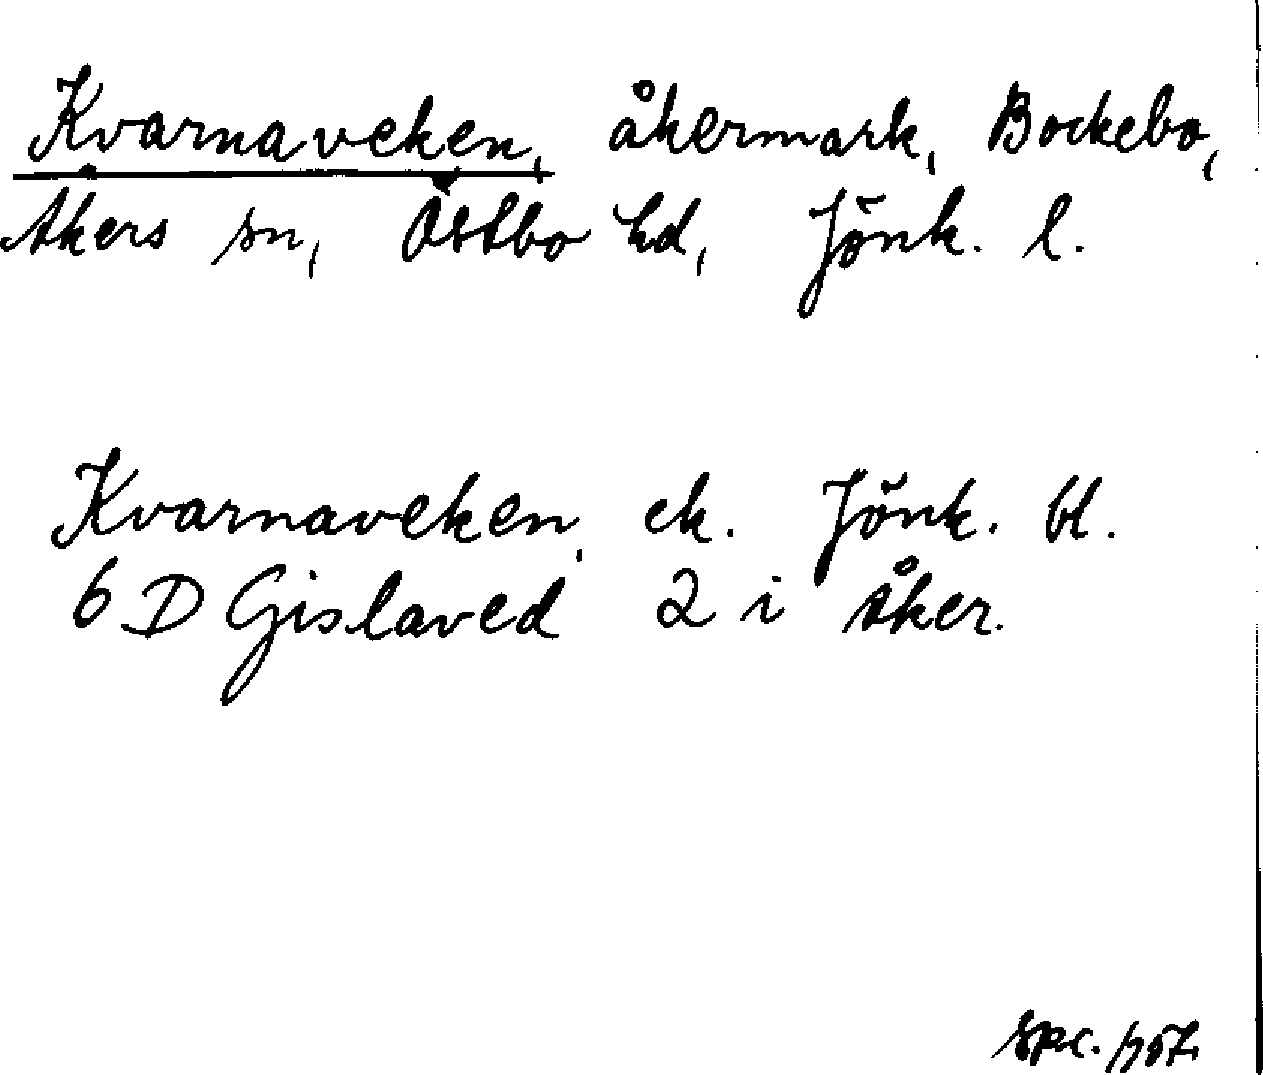 Kvarnaveken, åkermark, Bockebo,
Åkers sn, Östbo hd, Jönk. l.
Kvarnaveken, ek. Jönk. bl.
6 D Gislaved 2 i åker.